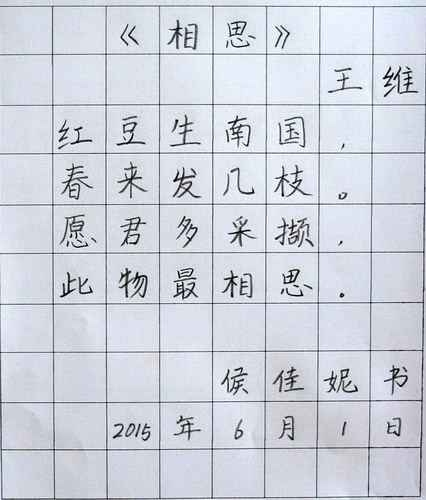 《相思》
王维
红豆生南国，
春来发几枝。
愿君多采撷，
此物最相思。
侯佳妮书
2015年6月1日